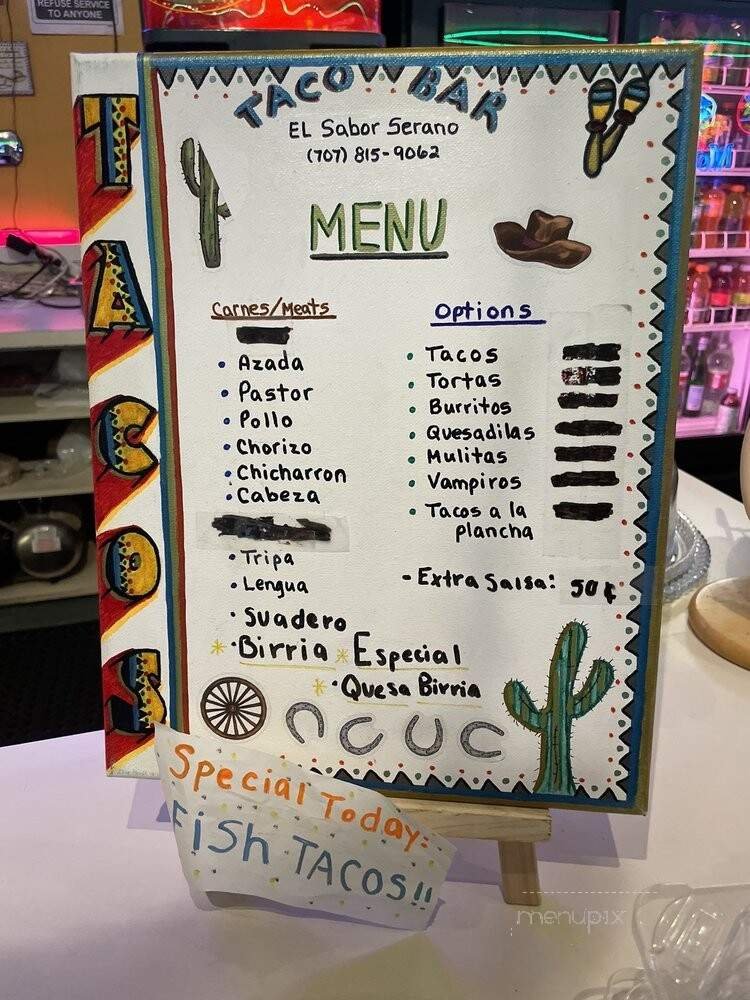 REFUSE SERVICE
TO ANYONE
TACO BAR
EL Sabor Serano
(707) 815-9062
MENU
TACOS
Carnes/Meats
• Azada
• Pastor
• Pollo
• Chorizo
• Chicharron
• Cabeza
• Tripa
• Lengua
• Suadero
* • Birria * Especial
* • Quesa Birria
Options
• Tacos
• Tortas
• Burritos
• Quesadilas
• Mulitas
• Vampiros
• Tacos a la
plancha
- Extra Salsa: 50¢
Special Today:
Fish TACOS!!
menupix